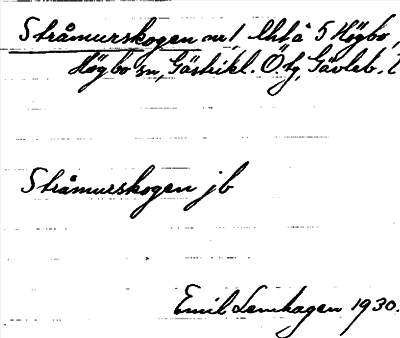 Stråmurskogen nr 1, Uhtå 5 Högbo,
Högbo sn, Gästrikl. Ö. tg, Gävleb. l
Stråmurskogen jb
Emil Lennhagen 1930.